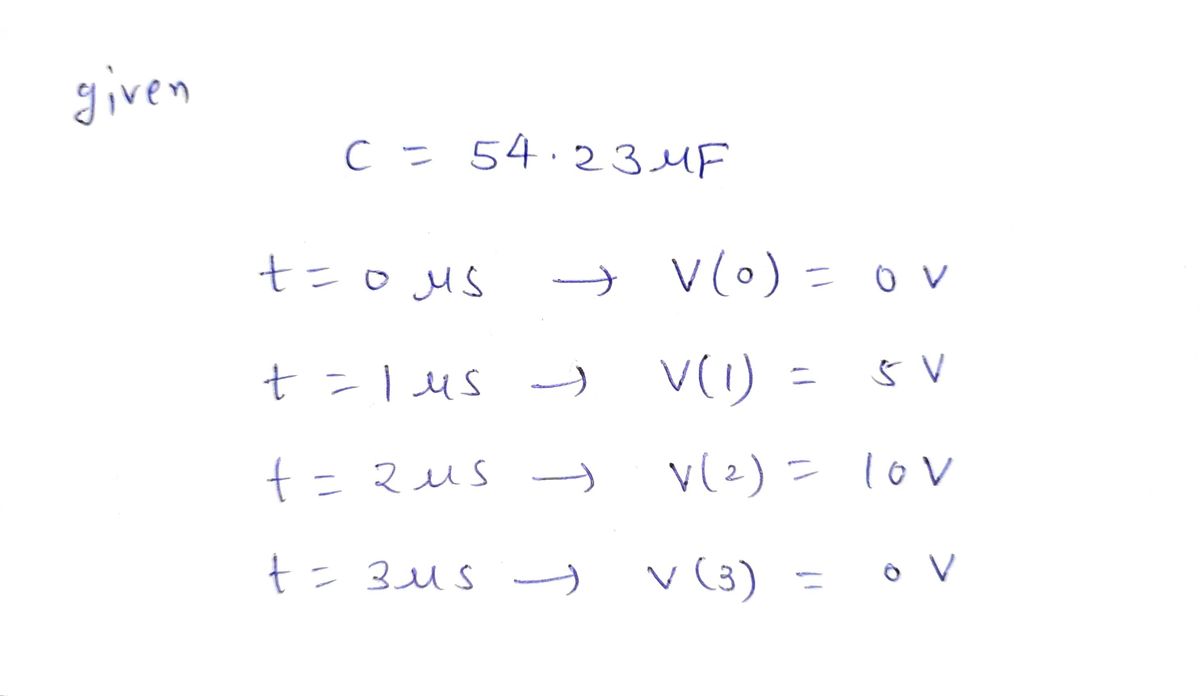 given
C = 54.23 μF
t = 0 μs → V(0) = 0 V
t = 1 μs → V(1) = 5 V
t = 2 μs → V(2) = 10 V
t = 3 μs → V(3) = 0 V